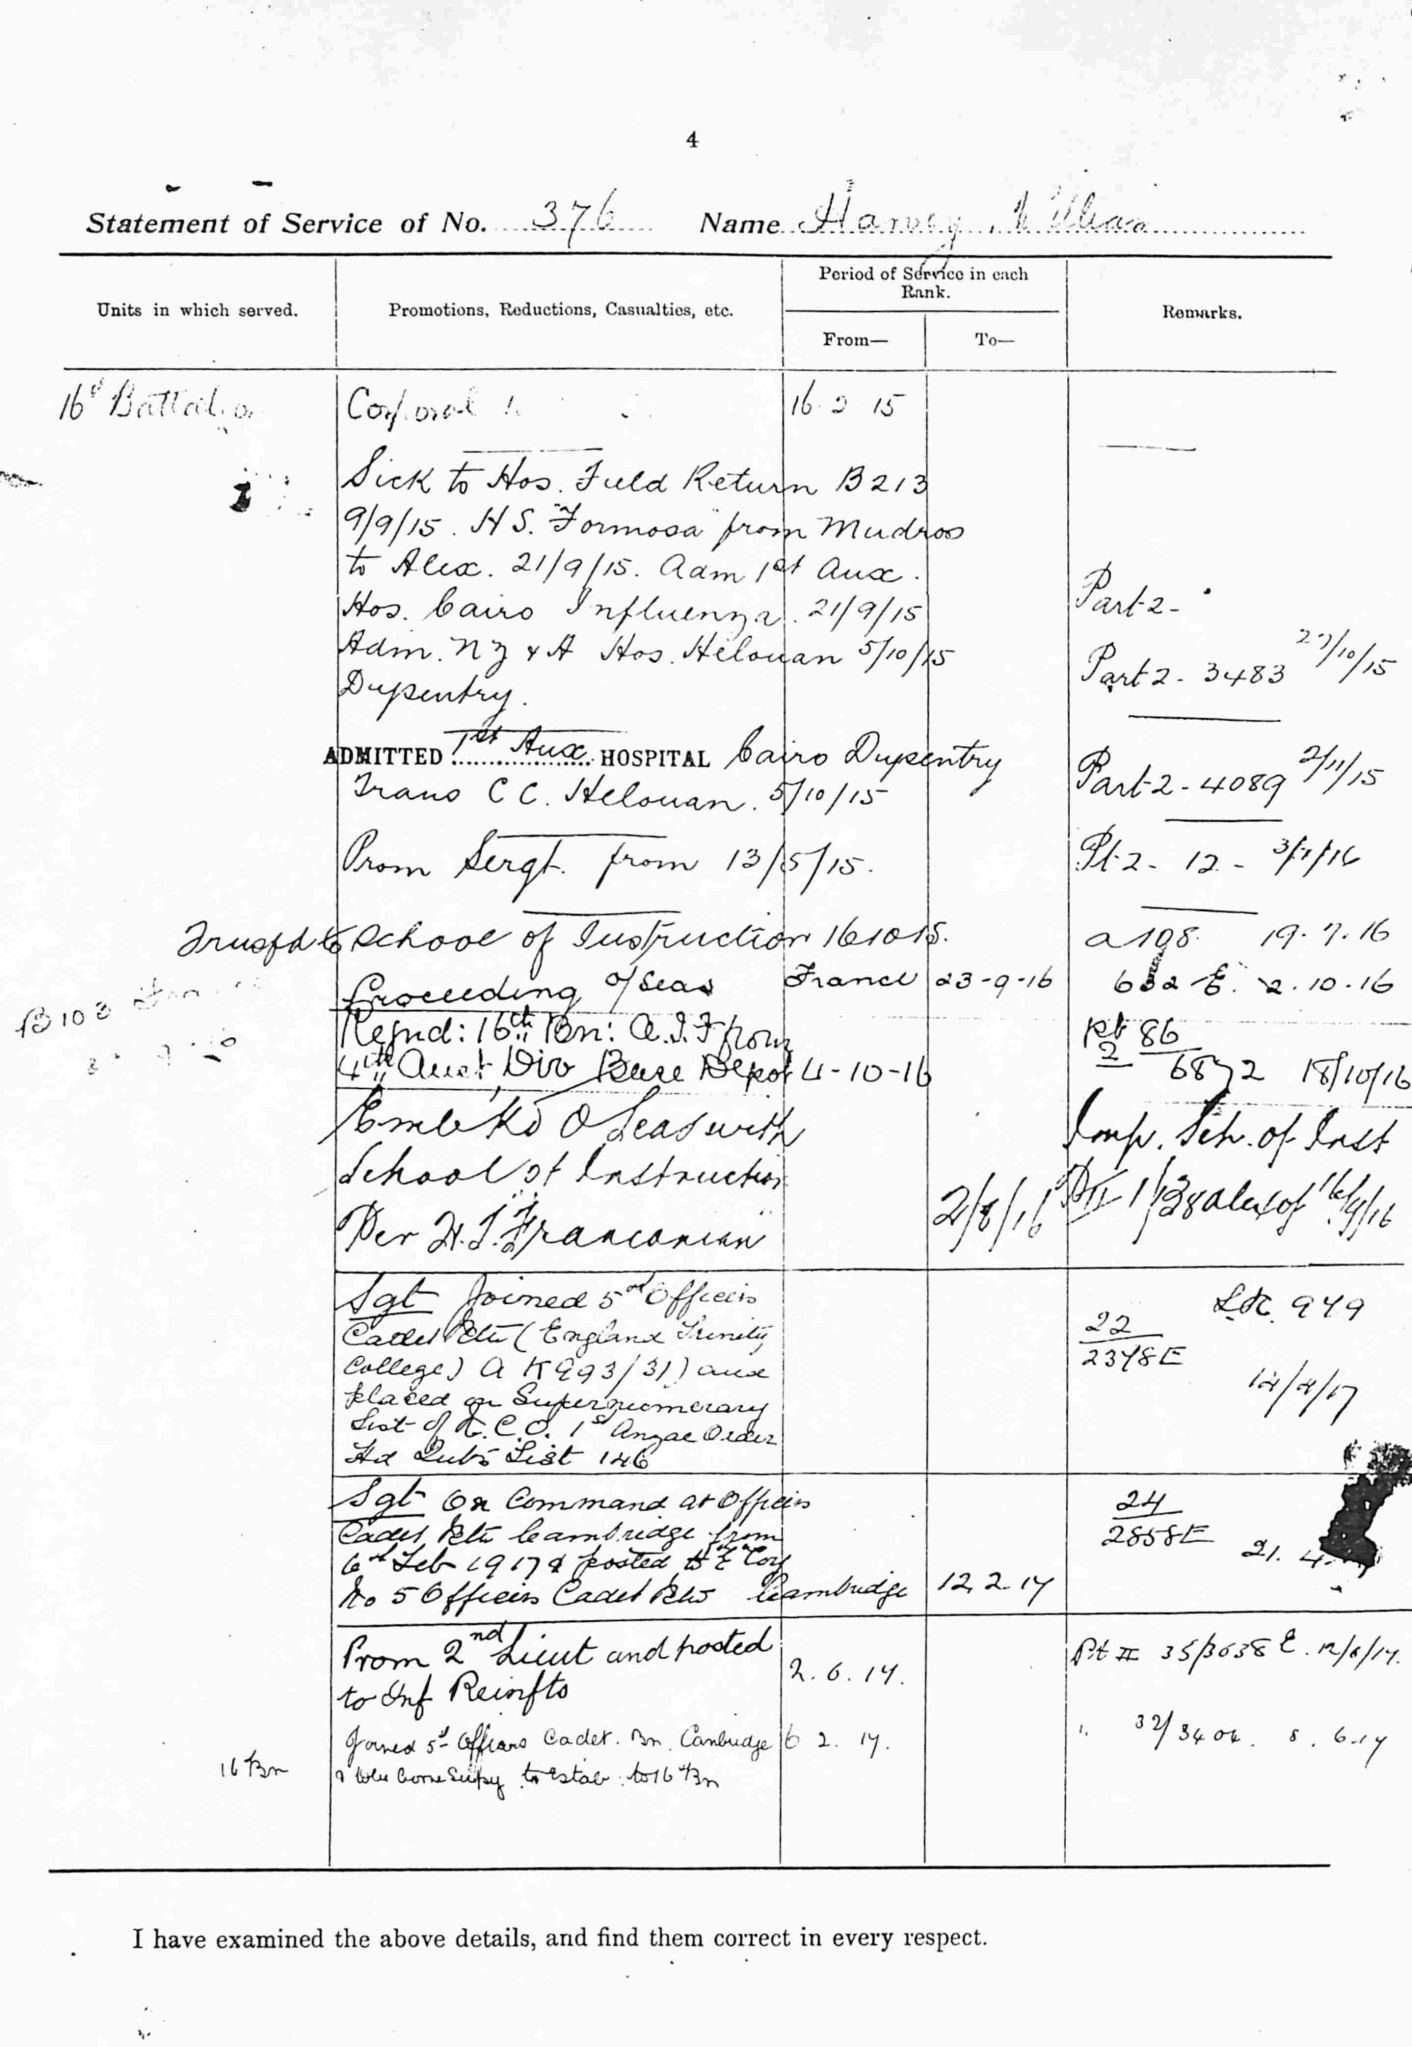 4
Statement of Service of No. 376 Name Harvey, William
Units in which served.
Promotions, Reductions, Casualties, etc.
Period of Service in each
Rank.
From—
To—
Remarks.
16th Battalion Corporal 16 2 15
Sick to Hos. Field Return B213
9/9/15. H S. "Formosa" from Mudros
to Alex. 21/9/15. Adm 1st Aux.
Hos. Cairo Influenza. 21/9/15 Part 2-
Adm. NZ & A Hos. Helouan 5/10/15 Part 2- 3483 27/10/15
Dysentry.
ADMITTED 1st Aux HOSPITAL Cairo Dysentry Part 2- 4089 2/11/15
Trans C C. Helouan. 5/10/15
Prom Sergt. from 13/5/15. Pt 2- 12 - 3/1/16
Trnsfd to School of Instruction 161015. a198. 19.7.16
Proceeding o/seas France 23-9-16 632 E. 2.10.16
B103
Rejnd: 16th Bn: A.I.F from Pt 2 86
4th Aust Div Base Depot 4-10-16 6872 18/10/16
Embkd O Seas with Imp. Sch. of Inst
School of Instruction
Per H.T. "Franconian" 2/8/16 Pt II 1/38 Alex of 16/9/16
Sgt Joined 5th Officers 949
Cadet Btn (England Trinity 22
College) A K 993/31) and 2348E
placed on Supernumerary 14/4/17
List of N.C.O. 1st Anzac Order
Hd Qrts List 146
Sgt On Command at Officers 24
Cadet Btn Cambridge from 2858E
6th Feb 1917 & posted to E Coy 21. 4
No 5 Officers Cadet Btn Cambridge 12.2.17
Prom 2nd Lieut and posted Pt II 35/3638 E. 12/6/17.
to Inf Reinfts 2. 6. 17.
Joined 5th Officers Cadet. Bn. Cambridge 6 2. 17. " 32/3404. 8. 6.17
16 Bn & to be borne Supy to Estab. to 16th Bn
I have examined the above details, and find them correct in every respect.